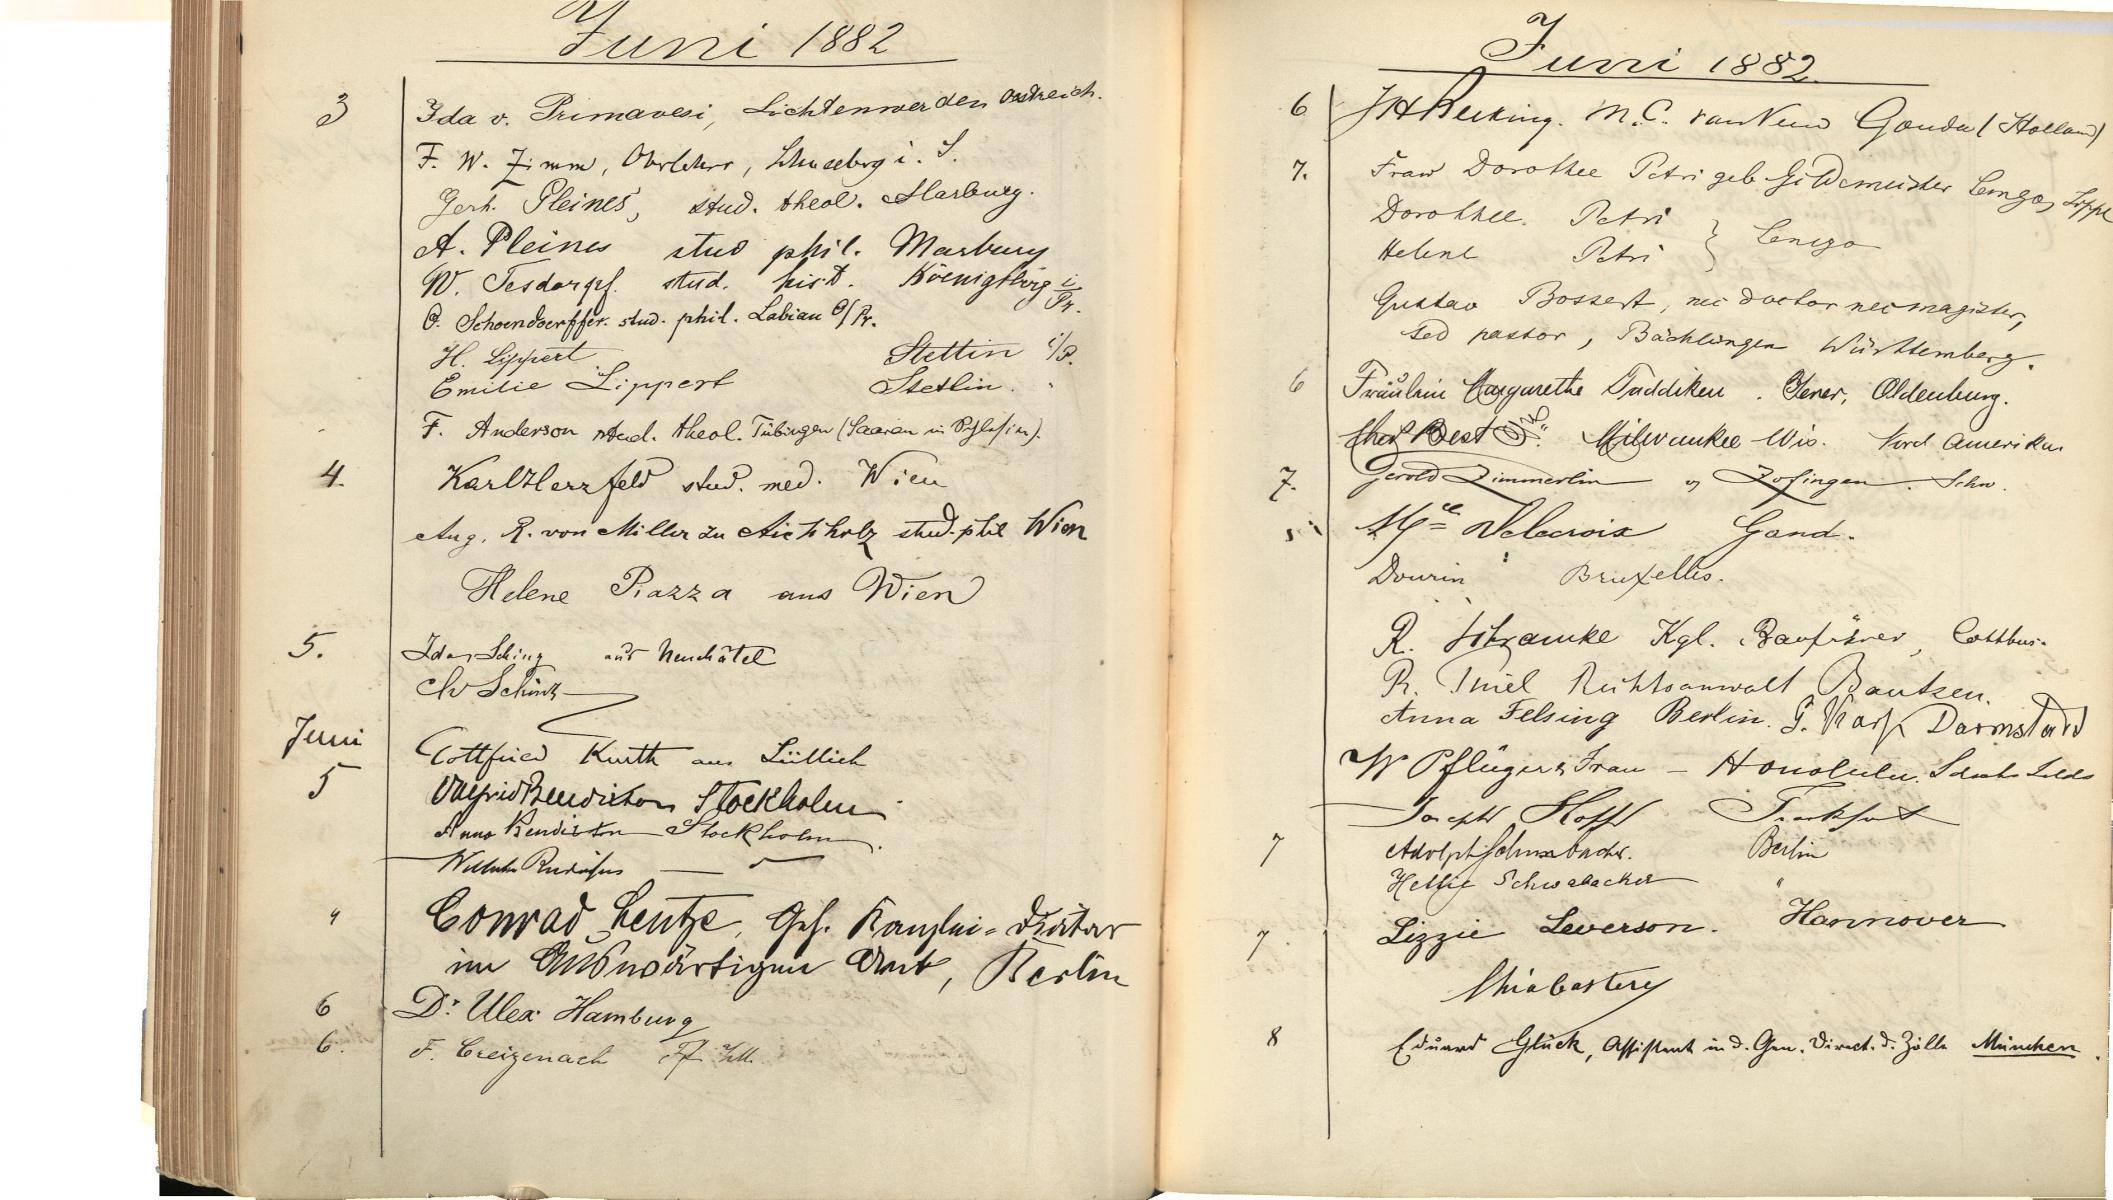 Juni 1882
3 Ida v. Primavesi, Lichtenwerden Östreich.
F. W. Zimm, Oberlehrer, Schneeberg i. S.
Gerh. Pleines, stud. theol. Marburg.
A. Pleines stud phil. Marburg
W. Tesdorpf. stud. hist. Koenigsberg i/Pr.
O. Schoendoerffer. stud. phil. Labiau O/Pr.
H. Lippert Stettin i/P.
Emilie Lippert Stettin.
F. Anderson stud. theol. Tübingen
4. Karl Herzfeld stud. med. Wien
Aug. R. von Miller zu Aichholz stud. phil Wien
Helene Piazza aus Wien
5. Ida Schinz aus Neuchâtel
Ch Schinz
Juni
Gottfried Kurth aus Lüttich
5 Bendixson Stockholm
Anna Bendixson Stockholm.
Wilhelm
" Conrad Lentze, Geh. Kanzlei-
im Auswärtigen Amt, Berlin
6 Dr Ulex Hamburg
6. F. Creizenach
Juni 1882.
6 M. C. Gouda (Holland)
7. Frau Dorothee Petri geb Gildemeister Lemgo, Lippe
Dorothee Petri } Lemgo
Helene Petri
Gustav Bossert, nec doctor nec magister,
sed pastor, Bächlingen Württemberg.
6 Fräulein Margarethe Taddiken. Jever, Oldenburg.
Best Milwaukee Wis. Nord Amerika
7. Gerold Zimmerlin v Zofingen. Schw.
Delacroix Gand.
Dourin Bruxelles.
R. Schramke Kgl. Cottbus.
R. Thiel Rechtsanwalt Bautzen.
Anna Felsing Berlin. Darmstadt
W Pflüger & Frau – Honolulu.
Joseph Hoff Frankfurt
7 Adolph Schwabacher. Berlin
Schwabacher "
7 Lizzie Leverson. Hannover
8 Eduard Glück, Assistent in d. Gen. Direct. d. Zölle München.